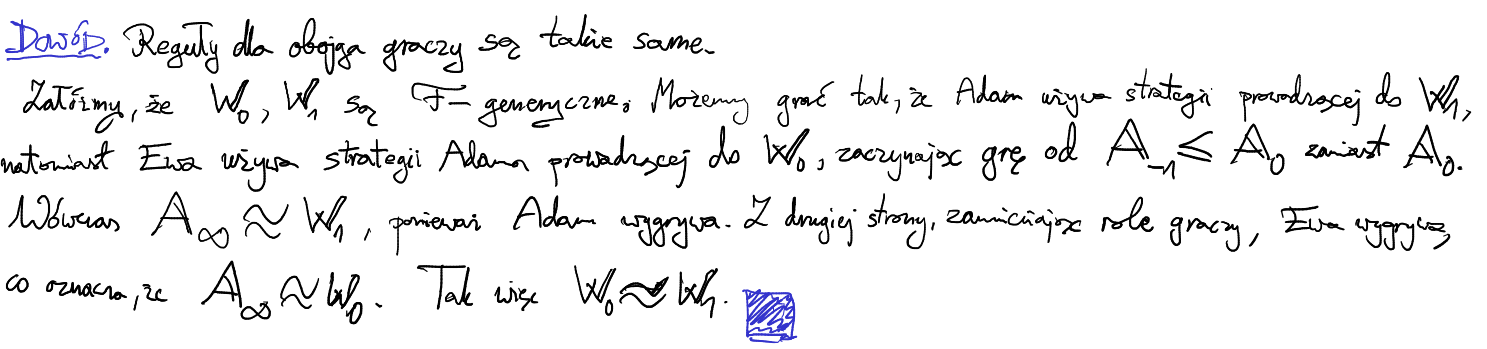 Dowód. Reguły dla obojga graczy są takie same.
Załóżmy, że 𝕎₀, 𝕎₁ są ℱ-generyczne. Możemy grać tak, że Adam używa strategii prowadzącej do 𝕎₁,
natomiast Ewa używa strategii Adama prowadzącej do 𝕎₀, zaczynając grę od 𝔸₋₁ ≤ 𝔸₀ zamiast 𝔸₀.
Wówczas 𝔸∞ ≈ 𝕎₁, ponieważ Adam wygrywa. Z drugiej strony, zamieniając role graczy, Ewa wygrywa,
co oznacza, że 𝔸∞ ≈ 𝕎₀. Tak więc 𝕎₀ ≈ 𝕎₁.